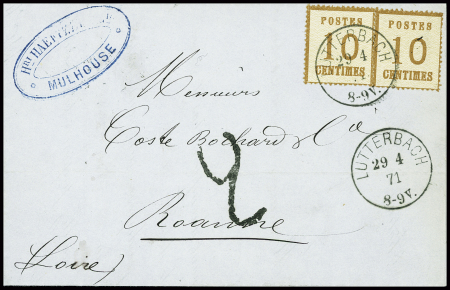 POSTES
10
CENTIMES
POSTES
10
CENTIMES
MULHOUSE
LUTTERBACH
29 4
8-9V.
Messieurs
Coste Bochard & Cie
2
LUTTERBACH
29 4
71
8-9V.
Roanne
(Loire)